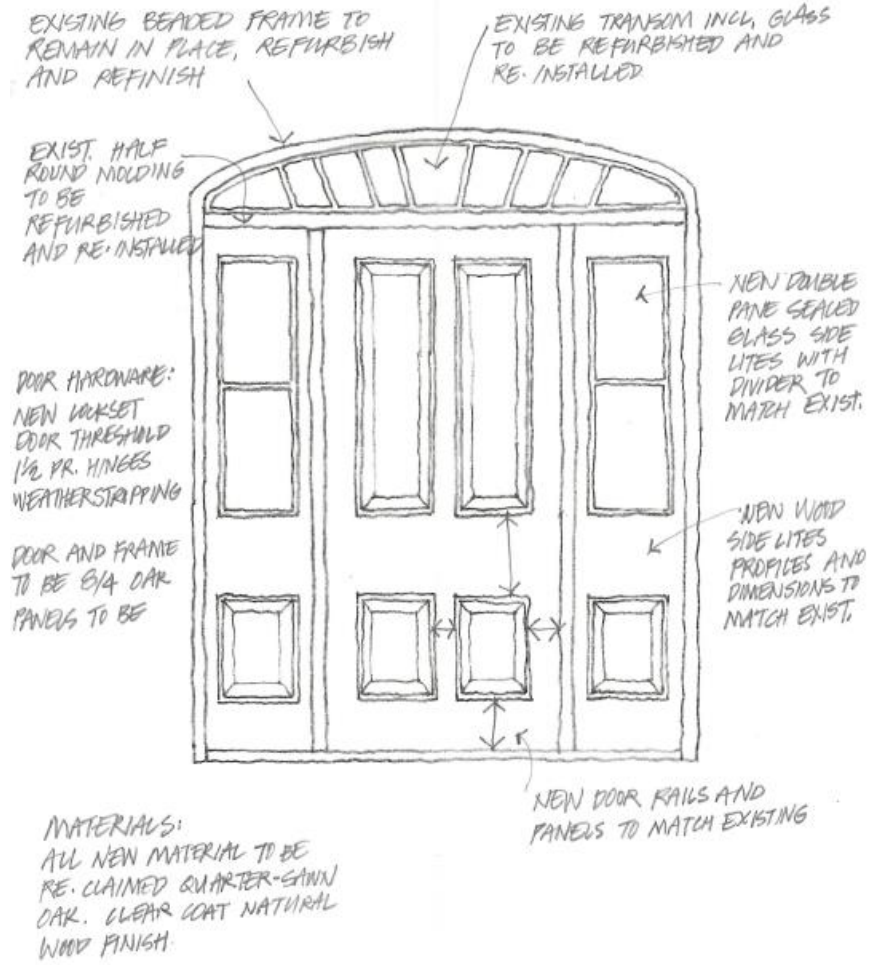 EXISTING BEADED FRAME TO
REMAIN IN PLACE, REFURBISH
AND REFINISH
EXISTING TRANSOM INCL, GLASS
TO BE REFURBISHED AND
RE-INSTALLED
EXIST. HALF
ROUND MOLDING
TO BE
REFURBISHED
AND RE-INSTALLED
NEW DOUBLE
PANE SEALED
GLASS SIDE
LITES WITH
DIVIDER TO
MATCH EXIST.
DOOR HARDWARE:
NEW LOCKSET
DOOR THRESHOLD
1½ PR. HINGES
WEATHERSTRIPPING
DOOR AND FRAME
TO BE 8/4 OAK
PANELS TO BE
NEW WOOD
SIDE LITES
PROFILES AND
DIMENSIONS TO
MATCH EXIST.
NEW DOOR RAILS AND
PANELS TO MATCH EXISTING
MATERIALS:
ALL NEW MATERIAL TO BE
RE-CLAIMED QUARTER-SAWN
OAK. CLEAR COAT NATURAL
WOOD FINISH.